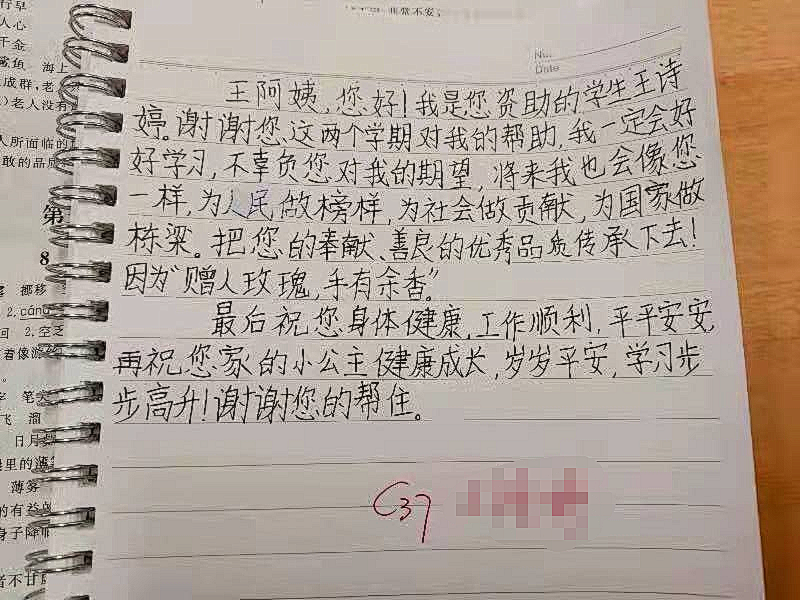 非常不安；
No.
Date
王阿姨，您好！我是您资助的学生王诗
婷。谢谢您这两个学期对我的帮助，我一定会好
好学习，不辜负您对我的期望，将来我也会像您
一样，为人民做榜样，为社会做贡献，为国家做
栋梁。把您的奉献、善良的优秀品质传承下去！
因为“赠人玫瑰，手有余香”。
最后祝您身体健康，工作顺利，平平安安，
再祝您家的小公主健康成长，岁岁平安，学习步
步高升！谢谢您的帮住。
C37
人心
千金
鲨鱼 海上
成群，老
老人没有
人所面临的
敢的品质
第
8
挪移
2.cáng
回 2.空乏
着像游
笔
飞 溜
日月
里的薄
薄雾
的有益
身子降临
者不甘